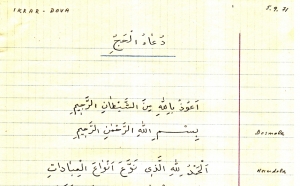 IKRAR - DAVA
5.9.71
دُعَاءُ الْحَجِّ
اَعُوذُ بِاللّٰهِ مِنَ الشَّيْطَانِ الرَّجِيمِ
بِسْمِ اللّٰهِ الرَّحْمٰنِ الرَّحِيمِ
Besmele
اَلْحَمْدُ لِلّٰهِ الَّذِي نَوَّعَ اَنْوَاعَ الْعِبَادَاتِ
Hamdele